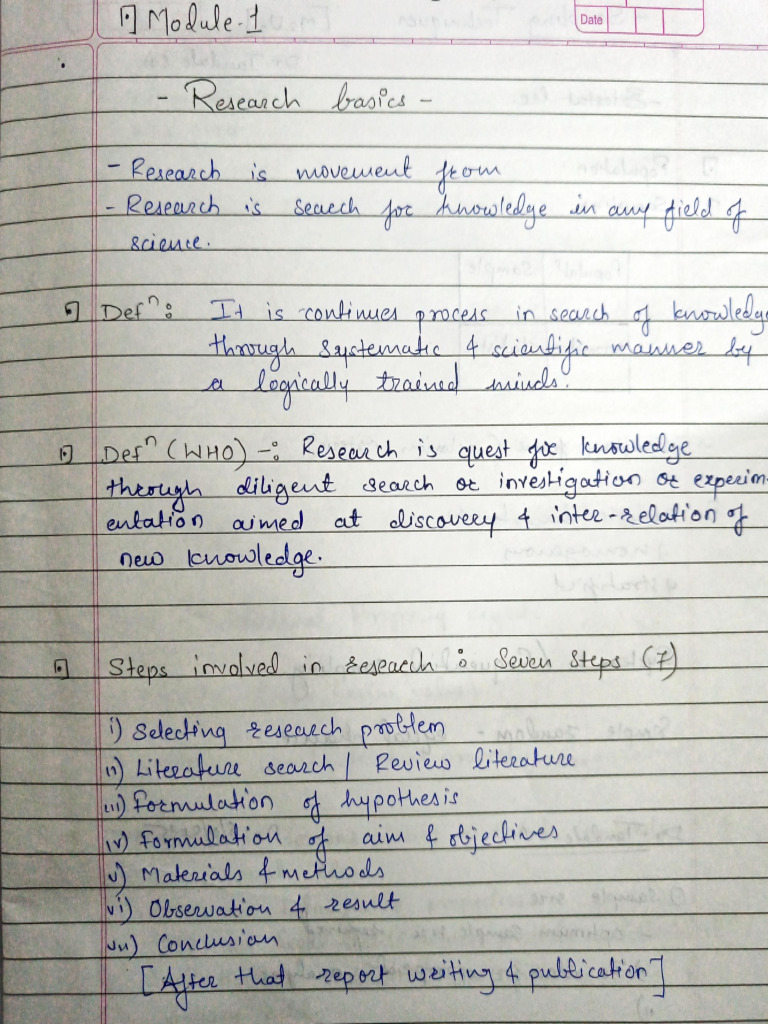 Module-1
Date
- Research basics -
- Research is movement from
- Research is search for knowledge in any field of
science.
Defⁿ: It is continues process in search of knowledge
through systematic & scientific manner by
a logically trained minds.
Defⁿ (WHO) -: Research is quest for knowledge
through diligent search or investigation or experim-
entation aimed at discovery & inter-relation of
new knowledge.
Steps involved in research : Seven steps (7)
i) Selecting research problem
ii) Literature search / Review literature
iii) formulation of hypothesis
iv) formulation of aim & objectives
v) Materials & methods
vi) Observation & result
vii) Conclusian
[After that report writing & publication]